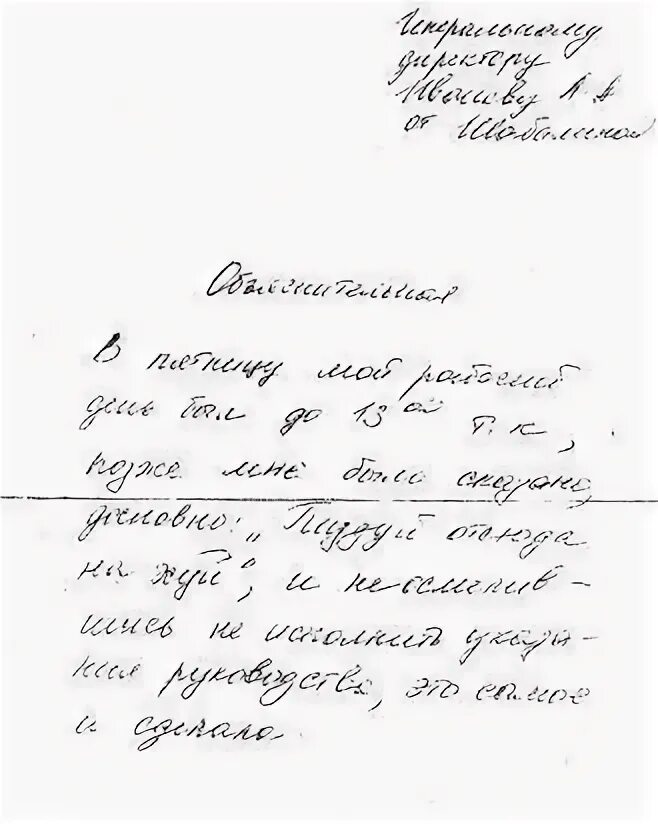 Генеральному
директору
Иванову А А
от Шабалиной
Объяснительная
В пятницу мой рабочий
день был до 13 00 т. к,
позже мне было сказано,
дословно: „Пиздуй отсюда
на хуй", и не осмелив –
шись не исполнить указа –
ния руководства, это самое
и сделала